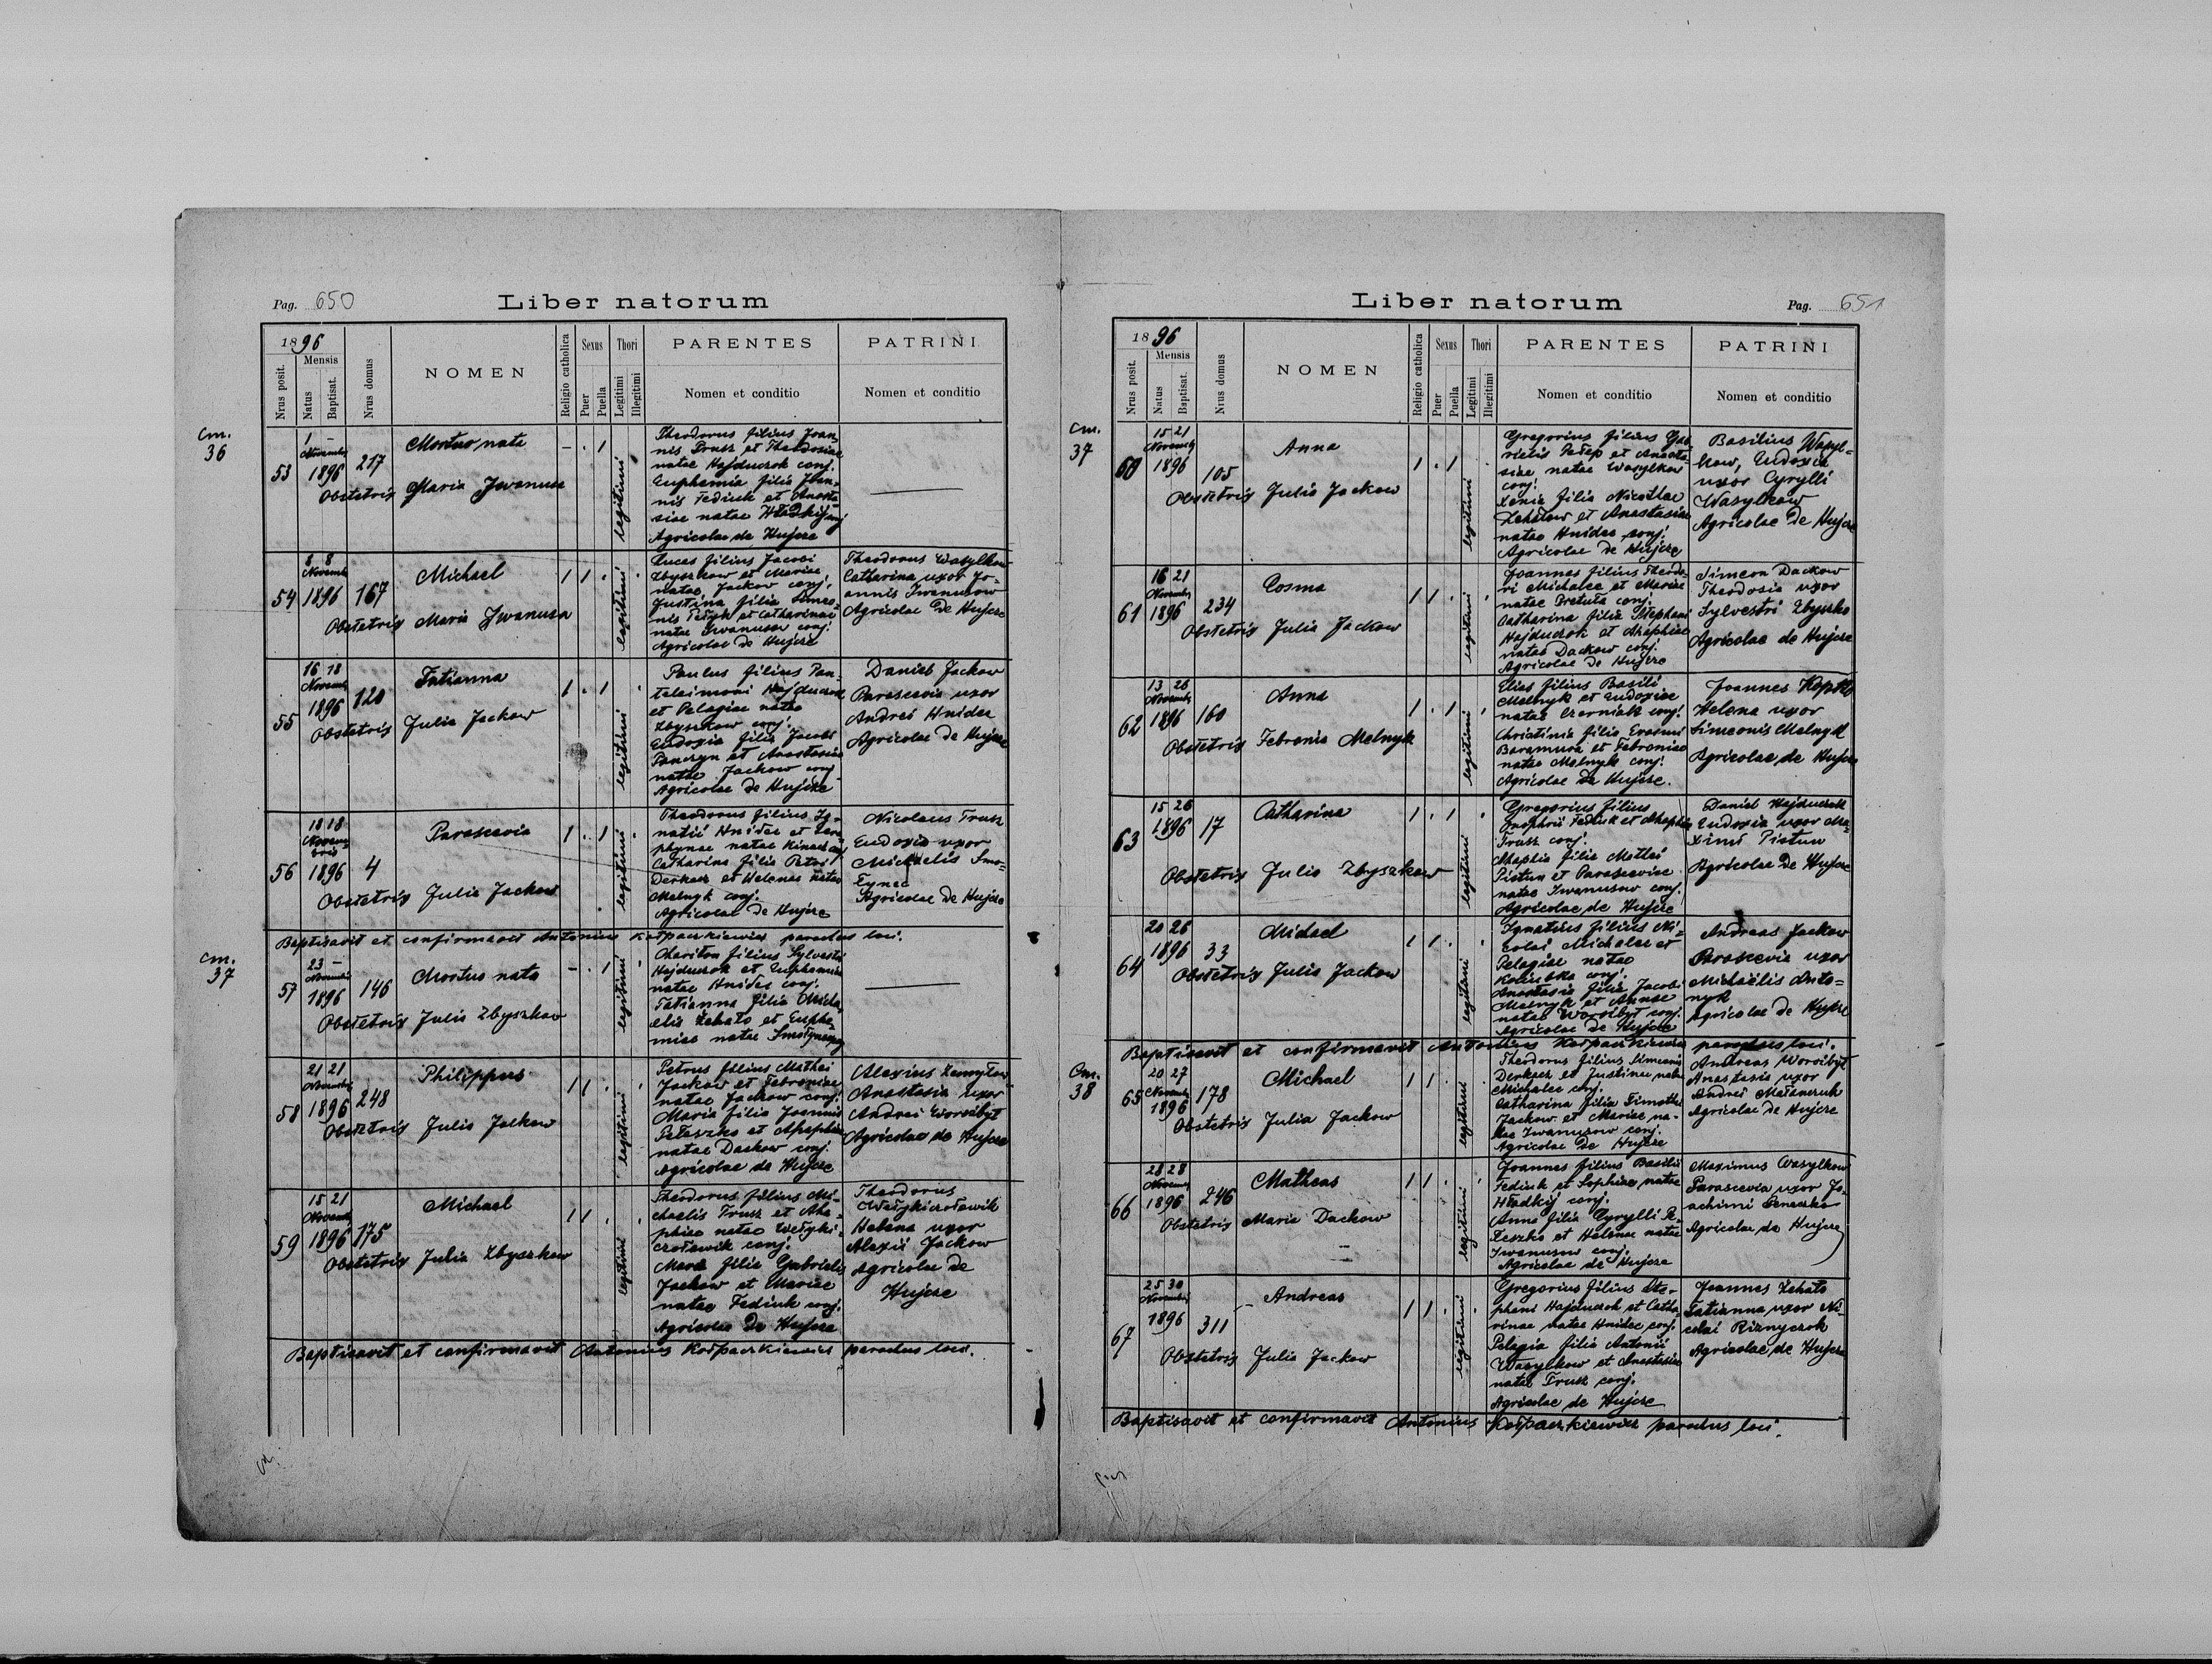 Pag. 650
Liber natorum
1896
Mensis
Nrus posit.
Natus
Baptisat.
Nrus domus
NOMEN
Religio catholica
Sexus
Puer
Puella
Thori
Legitimi
Illegitimi
PARENTES
Nomen et conditio
PATRINI
Nomen et conditio
cm.
36
53
1 –
Novembr
1896
217
Mortuo nata
Obstetrix Maria Iwanusa
– . 1
legitimi
Theodorus filius Joan-
nis Trusz et Theodosiae
natae Hajduczok conj.
Euphemia filia Joan-
nis Fediuk et Anasta-
siae natae Hładkij conj
Agricolae de Hujcze
54
8 8
Novembr
1896
167
Michael
Obstetrix Maria Iwanusa
1 1 .
legitimi
Lucas filius Jacobi
Zbyszkow et Mariae
natae Jackow conj.
Justina filia Simeo-
nis et Catharinae
natae Iwanusow conj.
Agricolae de Hujcze
Theodorus Wasylkow
Catharina uxor Jo-
annis Iwanusow
Agricolae de Hujcze
55
16 18
Novembr
1896
120
Tatianna
Obstetrix Julia Jackow
1 . 1
legitimi
Paulus filius Pan-
teleimoni Hajduczok
et Pelagiae natae
Zbyszkow conj.
Eudoxia filia Jacobi
Panczyn et Anastasiae
natae Jackow conj
Agricolae de Hujcze
Daniel Jackow
Parascevia uxor
Andrei Hnidec
Agricolae de Hujcze
56
18 18
Novem-
bris
1896
4
Parascevia
Obstetrix Julia Jackow
1 . 1
legitimi
Theodorus filius Ig-
natii Hnidec et Xero-
phynae natae conj
Catharina filia Petri
Derkacz et Helenae natae
Melnyk conj.
Agricolae de Hujcze
Nicolaus Trusz
Eudoxia uxor
Michaelis Smo-
łynec
Agricolae de Hujcze
Baptisavit et confirmavit Antonius Kołpaczkiewicz parochus loci.
cm.
37
57
23 –
Novembr
1896
146
Mortuo nata
Obstetrix Julia Zbyszkow
– . 1
legitimi
Chariton filius Sylvestri
Hajduczok et Euphemiae
natae Hnidec conj.
Tatianna filia Micha-
elis Żehało et Euphe-
miae natae Smołynec conj
58
21 21
Novembr
1896
248
Philippus
Obstetrix Julia Jackow
1 1 .
legitimi
Petrus filius Mathei
Jackow et Febroniae
natae Jackow conj.
Maria filia Joannis
Pełeszko et Ahaphiae
natae Dackow conj.
Agricolae de Hujcze
Alexius
Anastasia uxor
Andrei Worobyt
Agricolae de Hujcze
59
15 21
Novembr
1896
175
Michael
Obstetrix Julia Zbyszkow
1 1 .
legitimi
Theodorus filius Mi-
chaelis Trusz et Aha-
phiae natae Wełyki-
czołowik conj.
Maria filia Gabrielis
Jackow et Mariae
natae Fediuk conj.
Agricolae de Hujcze
Theodorus
Wełykiczołowik
Helena uxor
Alexii Jackow
Agricolae de
Hujcze
Baptisavit et confirmavit Antonius Kołpaczkiewicz parochus loci.
Liber natorum
Pag. 651
1896
Mensis
Nrus posit.
Natus
Baptisat.
Nrus domus
NOMEN
Religio catholica
Sexus
Puer
Puella
Thori
Legitimi
Illegitimi
PARENTES
Nomen et conditio
PATRINI
Nomen et conditio
cm.
37
60
15 21
Novembr
1896
105
Anna
Obstetrix Julia Jackow
1 . 1
legitimi
Gregorius filius Gab-
rielis et Anasta-
siae natae Wasylkow
conj.
Xenia filia Nicolae
et Anastasiae
natae Hnidec conj.
Agricolae de Hujcze
Basilius Wasyl-
kow, Eudoxia
uxor Cyrylli
Wasylkow
Agricolae de Hujcze
61
16 21
Novembr
1896
234
Cosma
Obstetrix Julia Jackow
1 1 .
legitimi
Joannes filius Theodo-
ri Michalec et Mariae
natae conj.
Catharina filia Stephani
Hajduczok et Ahaphiae
natae Dackow conj.
Agricolae de Hujcze
Simeon Dackow
Theodosia uxor
Sylvestri Zbyszko
Agricolae de Hujcze
62
13 26
Novembr
1896
160
Anna
Obstetrix Febronia Melnyk
1 . 1
legitimi
Elias filius Basili
Melnyk et Eudoxiae
natae Czerniak conj.
Christinia filia Erasmi
Baramura et Febroniae
natae Melnyk conj.
Agricolae de Hujcze.
Joannes Kopytko
Helena uxor
Simeonis Melnyk
Agricolae de Hujcze
63
15 26
1896
17
Catharina
Obstetrix Julia Zbyszkow
1 . 1
legitimi
Gregorius filius
Onophrii Fediuk et Ahaphia
Trusz conj.
Ahaphia filia Mathei
Pistun et Parasceviae
natae Iwanusow conj.
Agricolae de Hujcze
Daniel Hajduczok
Eudoxia uxor Ma-
ximi Pistun
Agricolae de Hujcze
64
20 26
1896
33
Michael
Obstetrix Julia Jackow
1 1 .
legitimi
Ignatius filius Ni-
colai Michalec et
Pelagiae natae
conj.
Anastasia filia Jacobi
Melnyk et Annae
natae Worobyt conj.
Agricolae de Hujcze
Andreas Jackow
Parascevia uxor
Michaëlis Anto-
nyk
Agricolae de Hujcze
Baptisavit et confirmavit Antonius Kołpaczkiewicz parochus loci.
Cm.
38
65
20 27
Novembr
1896
178
Michael
Obstetrix Julia Jackow
1 1 .
legitimi
Theodorus filius Simeonis
Derkacz et Justinae natae
Michalec conj.
Catharina filia Timothei
Jackow et Mariae na-
tae Iwanusow conj.
Agricolae de Hujcze
Andreas Worobyt
Anastasia uxor
Andrei
Agricolae de Hujcze
66
28 28
Novembr
1896
246
Matheas
Obstetrix Maria Dackow
1 1 .
legitimi
Joannes filius Basilii
Fediuk et Sophiae natae
Hładkij conj.
Anna filia Cyrylli Pe-
łeszko et Helenae natae
Iwanusow conj.
Agricolae de Hujcze
Maximus Wasylkow
Parascevia uxor Jo-
achimi
Agricolae de Hujcze
67
25 30
Novembr
1896
311
Andreas
Obstetrix Julia Jackow
1 1 .
legitimi
Gregorius filius Ste-
phani Hajduczok et Catha-
rinae natae Hnidec conj.
Pelagia filia Antonii
Wasylkow et Anastasiae
natae Trusz conj.
Agricolae de Hujcze
Joannes Żehało
Tatianna uxor Ni-
colai Riznyczok
Agricolae de Hujcze
Baptisavit et confirmavit Antonius Kołpaczkiewicz parochus loci.